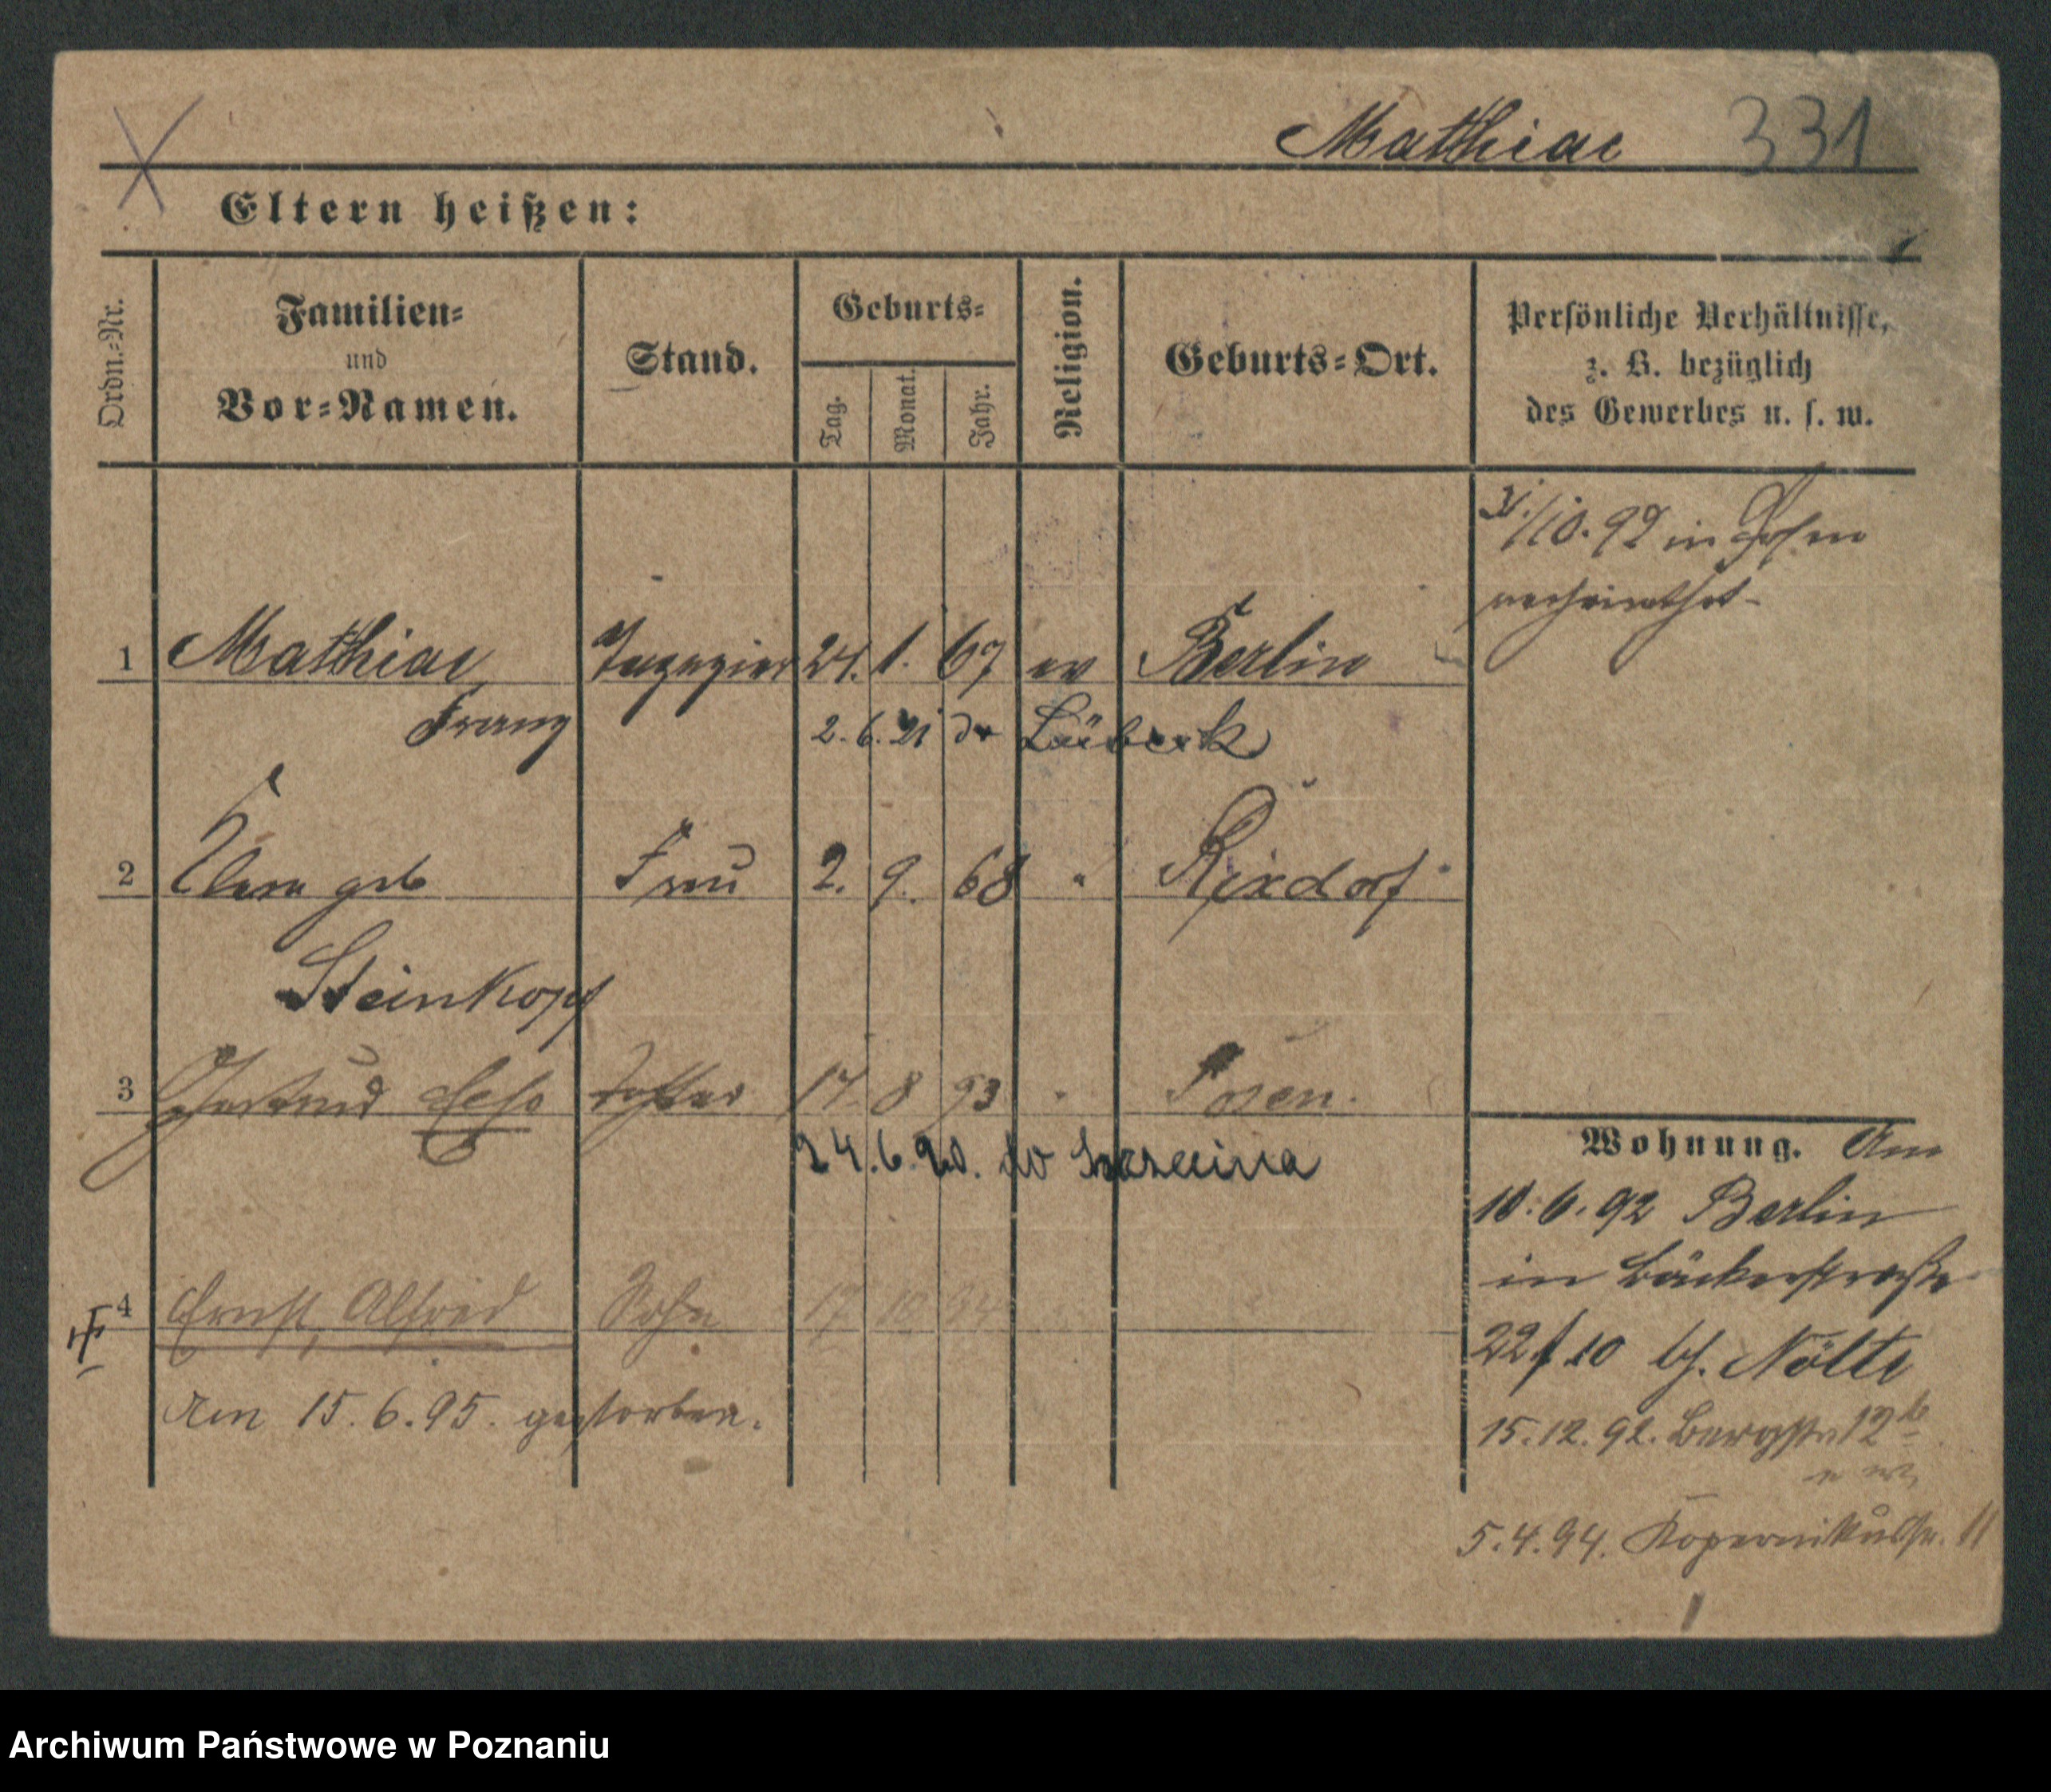 Mathiae 331
Eltern heißen:
Ordn.-Nr.
Familien-
und
Vor-Namen.
Stand.
Geburts-
Tag.
Monat.
Jahr.
Religion.
Geburts-Ort.
Persönliche Verhältnisse,
z. B. bezüglich
des Gewerbes u. s. w.
31./10.92 in Posen
verheirathet
1 Mathiae Tapezier 24. 1. 67 ev Berlin
Franz
2.6.21 do Lübeck
2 Clara geb Frau 2. 9. 68 " Rixdorf
Steinkopf
3 Gertrud Tochter 17 8 93 " Posen.
24.6.20. do Szczecina
4 Ernst, Alfred Sohn 17 10 94
Am 15.6.95. gestorben.
Wohnung. Am
10.6.92 Berlin
in Bäckerstraße
22/10 bei Nölte
15.12.92. Bergstr 12b
5.4.94. Kopernikusstr. 11
Archiwum Państwowe w Poznaniu